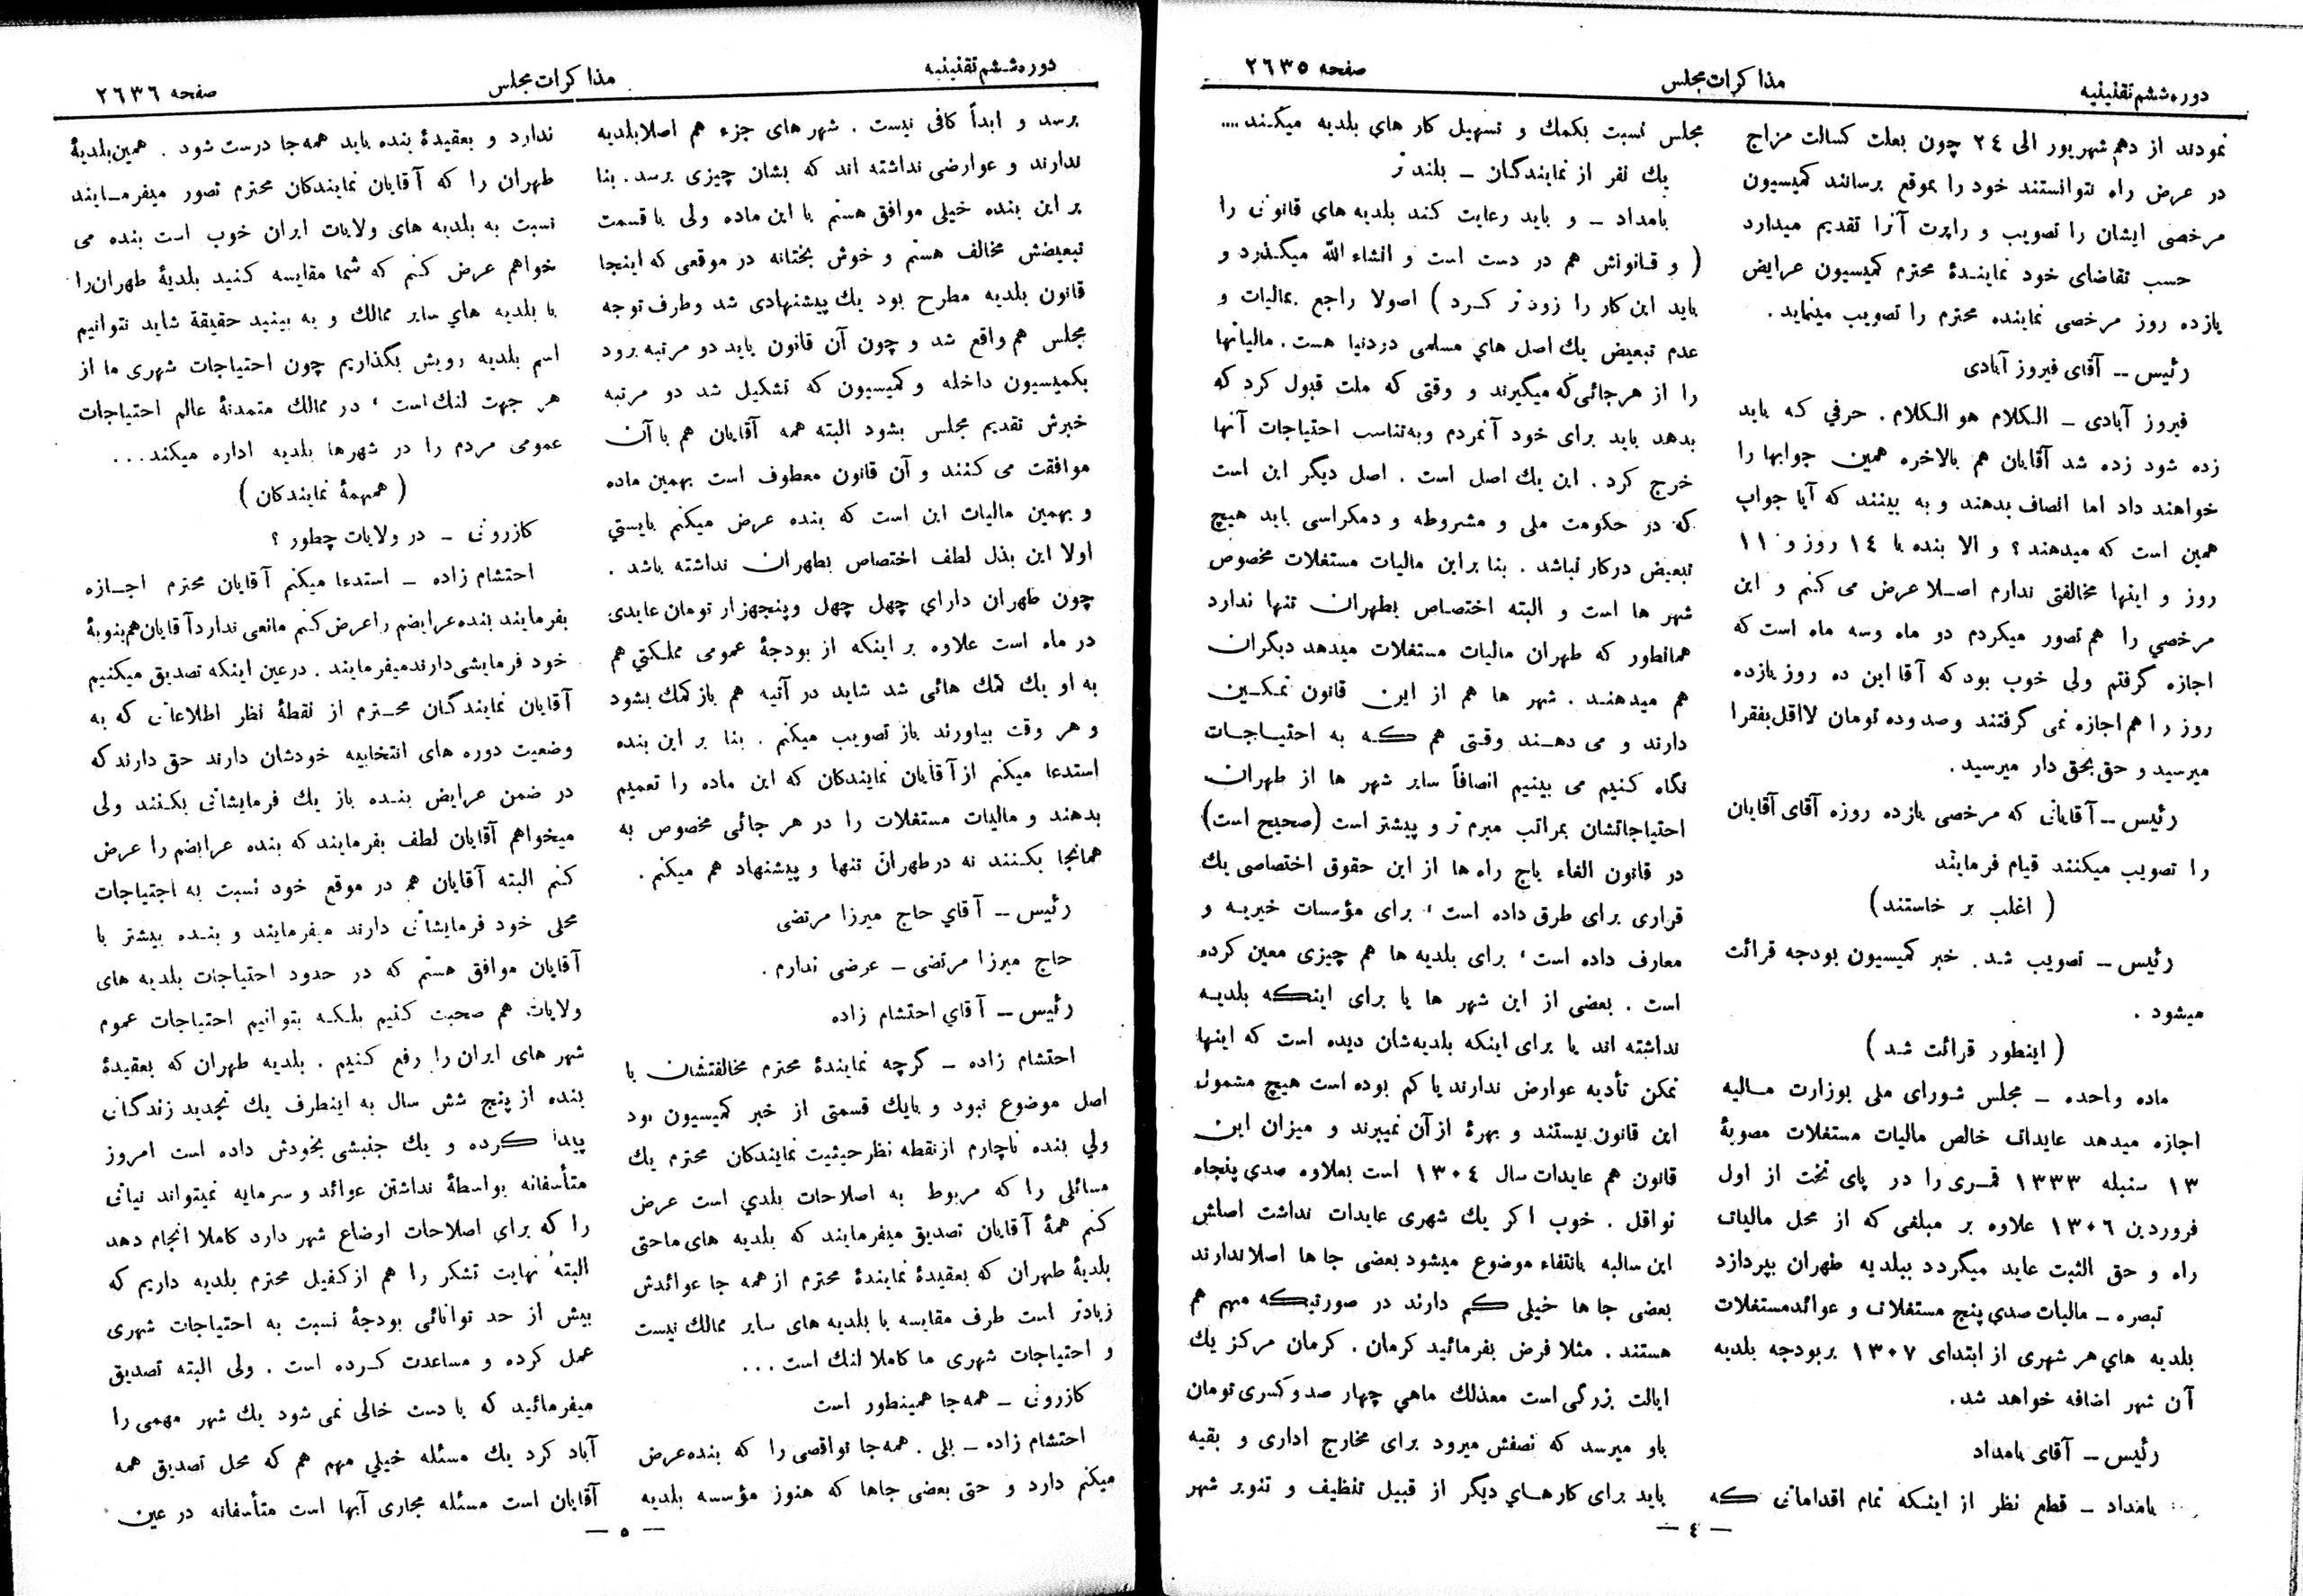 دوره ششم تقنینیه
مذاکرات مجلس
صفحه ۲٦۳٥
نمودند از دهم شهریور الی ۲٤ چون بعلت کسالت مزاج
در عرض راه نتوانستند خود را بموقع برسانند کمیسیون
مرخصی ایشان را تصویب و راپرت آنرا تقدیم میدارد
حسب تقاضای خود نماینـدهٔ محترم کمیسیون عرایض
یازده روز مرخصی نماینده محترم را تصویب مینماید .
رئیس – آقای فیروز آبادی
فیروز آبادی – الکلام هو الکلام . حرفی که باید
زده شود زده شد آقایان هم بالاخره همین جوابها را
خواهند داد اما انصاف بدهند و به بینند که آیا جواب
همین است که میدهند ؟ و الا بنده با ۱٤ روز و ۱۱
روز و اینها مخالفتی ندارم اصـلا عرض می کنم و این
مرخصی را هم تصور میکردم دو ماه وسه ماه است که
اجازه گرفتم ولی خوب بود که آقا این ده روز یازده
روز را هم اجازه نمی گرفتند و صد و ده تومان لااقل بفقرا
میرسید و حق بحق دار میرسید .
رئیس – آقایانی که مرخصی یازده روزه آقای آقایان
را تصویب میکنند قیام فرمایند
( اغلب بر خاستند )
رئیس – تصویب شد . خبر کمیسیون بودجه قرائت
میشود .
( اینطور قرائت شد )
ماده واحده – مجلس شورای ملی بوزارت مـالیه
اجازه میدهد عایدات خالص مالیات مستغلات مصوبهٔ
۱۳ سنبله ۱۳۳۳ قمـری را در پای تخت از اول
فروردین ۱۳۰٦ علاوه بر مبلغی که از محل مالیات
راه و حق الثبت عاید میگردد ببلدیه طهران بپردازد
تبصره – مالیات صدی پنج مستغلات و عوائد مستغلات
بلدیه های هر شهری از ابتدای ۱۳۰۷ بر بودجه بلدیه
آن شهر اضافه خواهد شد .
رئیس – آقای یامداد
یامداد – قطع نظر از اینـکه تمام اقداماتی که
مجلس نسبت بکمک و تسهیل کار های بلدیه میکـند ....
یک نفر از نمایندگـان – بلند تر
بامداد – و باید رعایت کند بلدیه های قانونی را
( و قـانونش هم در دست است و انشاء الله میگـذرد و
باید این کار را زود تر کـرد ) اصولا راجع بمالیات و
عدم تبعیض یک اصل های مسلمی در دنیا هست . مالیاتها
را از هر جائی که میگیرند و وقتی که ملت قبول کرد که
بدهد باید برای خود آنمردم و به تناسب احتیاجات آنها
خرج کرد . این یک اصل است . اصل دیگر این است
که در حکومت ملی و مشروطه و دمکراسی باید هیچ
تبعیض در کار نباشد . بنا بر این مالیات مستغلات مخصوص
شهر ها است و البته اختصـاص بطهران تنها ندارد
همانطور که طهران مالیات مستغلات میدهد دیگران
هم میدهنـد . شهر ها هم از این قانون تمکـین
دارند و می دهـند وقـتی هم کـه به احتیـاجـات
نگاه کنیم می بینیم انصافاً سایر شهر ها از طهران
احتیاجاتشان بمراتب مبرم تر و بیشتر است (صحیح است)
در قانون الغاء باج راه ها از این حقوق اختصاصی یک
قراری برای طرق داده است ، برای مؤسسات خیریـه و
معارف داده است ، برای بلدیه ها هم چیزی معین کرده
است . بعضی از این شهر ها یا برای اینکه بلدیـه
نداشته اند یا برای اینکه بلدیه شان دیده است که اینها
تمکن تأدیه عوارض ندارند یا کم بوده است هیچ مشمول
این قانون نیستند و بهرهٔ از آن نمیبرند و میزان این
قانون هم عایدات سال ۱۳۰٤ است بعلاوه صدی پنجاه
نواقل . خوب اگر یک شهری عایدات نداشت اصلش
این سالبه بانتفاء موضوع میشود بعضی جا ها اصلا ندارند
بعضی جا ها خیلی کم دارند در صورتیکه مهم هم
هستند . مثلا فرض بفرمائید کرمان . کرمان مرکز یک
ایالت بزرگی است معذلک ماهی چهار صد و کسری تومان
باو میرسد که نصفش میرود برای مخارج اداری و بقیه
باید برای کار هـای دیگر از قبیل تنظیف و تنویر شهر
— ٤ —
دوره ششم تقنینیه
مذاکرات مجلس
صفحه ۲٦۳٦
برسد و ابداً کافی نیست . شهر های جزء هم اصلا بلدیه
ندارند و عوارضی نداشته اند که بشان چیزی برسد . بنا
بر این بنده خیلی موافق هستم با این ماده ولی با قسمت
تبعیضش مخالف هستم و خوش بختانه در موقعی که اینجا
قانون بلدیه مطرح بود یک پیشنهادی شد و طرف توجه
مجلس هم واقع شد و چون آن قانون باید دو مرتبه برود
بکمیسیون داخله و کمیسیون که تشکیل شد دو مرتبه
خبرش تقدیم مجلس بشود البته همه آقایان هم با آن
موافقت می کنند و آن قانون معطوف است بهمین ماده
و بهمین مالیات این است که بنده عرض میکنم بایستی
اولا این بذل لطف اختصاص بطهران نداشته باشد .
چون طهران دارای چهل چهل و پنجهزار تومان عایدی
در ماه است علاوه بر اینکه از بودجهٔ عمومی مملکتی هم
به او یک کمک هائی شد شاید در آتیه هم باز کمک بشود
و هر وقت بیاورند باز تصویب میکنم . بنا بر این بنده
استدعا میکنم از آقایان نمایندکان که این ماده را تعمیم
بدهند و مالیات مستغلات را در هر جائی مخصوص به
همانجا بکنند نه در طهران تنها و پیشنهاد هم میکنم .
رئیس – آقای حاج میرزا مرتضی
حاج میرزا مرتضی – عرضی ندارم .
رئیس – آقای احتشام زاده
احتشام زاده – گرچه نمایندهٔ محترم مخالفتشان با
اصل موضوع نبود و بایک قسمتی از خبر کمیسیون بود
ولی بنده ناچارم از نقطه نظر حیثیت نمایندکان محترم یک
مسائلی را که مربوط به اصلاحات بلدی است عرض
کنم همهٔ آقایان تصدیق میفرمایند که بلدیه های ما حتی
بلدیهٔ طهران که بعقیدهٔ نمایندهٔ محترم از همه جا عوائدش
زیادتر است طرف مقایسه با بلدیه های سایر ممالک نیست
و احتیاجات شهری ما کاملا لنک است ...
کازرونی – همه جا همینطور است
احتشام زاده – بلی . همه جا نواقصی را که بنده عرض
میکنم دارد و حتی بعضی جاها که هنوز مؤسسه بلدیه
ندارد و بعقیدهٔ بنده باید همه جا درست شود . همین بلدیهٔ
طهران را که آقایان نمایندکان محترم تصور میفرمـایند
نسبت به بلدیه های ولایات ایران خوب است بنده می
خواهم عرض کنم که شما مقایسه کنید بلدیهٔ طهران را
با بلدیه های سایر ممالک و به بینید حقیقة شاید نتوانیم
اسم بلدیه رویش بگذاریم چون احتیاجات شهری ما از
هر جهت لنک است ، در ممالک متمدنهٔ عالم احتیاجات
عمومی مردم را در شهرها بلدیه اداره میکند ...
( همهمهٔ نمایندکان )
کازرونی – در ولایات چطور ؟
احتشام زاده – استدعا میکنم آقایان محترم اجـازه
بفرمایند بنده عرایضم را عرض کنم مانعی ندارد آقایان هم بنوبهٔ
خود فرمایشی دارند میفرمایند . در عین اینکه تصدیق میکنیم
آقایان نمایندگـان محـترم از نقطهٔ نظر اطلاعاتی که به
وضعیت دوره های انتخابیه خودشان دارند حق دارند که
در ضمن عرایض بنـده باز یک فرمایشاتی بکـنند ولی
میخواهم آقایان لطف بفرمایند که بنده عرایضم را عرض
کنم البته آقایان هم در موقع خود نسبت به احتیاجات
محلی خود فرمایشاتی دارند میفرمایند و بنـده بیشتر با
آقایان موافق هستم که در حدود احتیاجات بلدیه های
ولایات هم صحبت کنیم بلـکـه بتوانیم احتیاجات عموم
شهر های ایران را رفع کنیم . بلدیه طهران که بعقیدهٔ
بنده از پنج شش سال به اینطرف یک تجدید زندگـانی
پیدا کرده و یک جنبشی بخودش داده است امروز
متأسفانه بواسطهٔ نداشتن عوائد و سرمایه نمیتواند نیاتی
را که برای اصلاحات اوضاع شهر دارد کاملا انجام دهد
البته نهایت تشکر را هم از کفیل محترم بلدیه داریم که
بیش از حد توانائی بودجهٔ نسبت به احتیاجات شهری
عمل کرده و مساعدت کـرده است . ولی البته تصدیق
میفرمائید که با دست خالی نمی شود یک شهر مهمی را
آباد کرد یک مسئله خیلی مهم هم که محل تصدیق همه
آقایان است مسئله مجاری آبها است متأسفانه در عین
— ٥ —